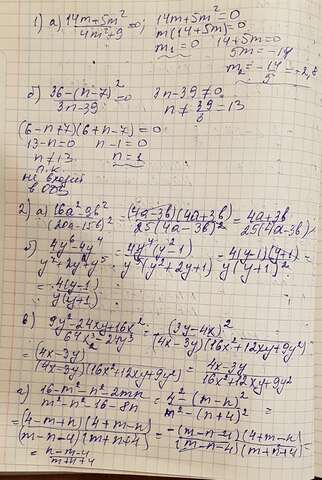 1) а) (14m+5m²)/(4m²+9) = 0; 14m+5m²=0
m(14+5m)=0
m₁=0 14+5m=0
5m=-14
m₂=-14/5=-2,8
б) (36-(n-7)²)/(3n-39)=0 3n-39≠0
n≠39/3=13
(6-n+7)(6+n-7)=0
13-n=0 n-1=0
n≠13 n=1
т.к
не входит
в ОДЗ
2) а) (16a²-9b²)/(20a-15b)²=((4a-3b)(4a+3b))/(25(4a-3b)²)=(4a+3b)/(25(4a-3b))
б) (4y⁶-4y⁴)/(y³+2y⁴+y⁵)=(4y⁴(y²-1))/(y³(y²+2y+1))=(4(y-1)(y+1))/(y(y+1)²)=
=(4(y-1))/(y(y+1))
в) (9y²-24xy+16x²)/(64x³-27y³)=(3y-4x)²/((4x-3y)(16x²+12xy+9y²))=
=(4x-3y)²/((4x-3y)(16x²+12xy+9y²))=(4x-3y)/(16x²+12xy+9y²)
г) (16-m²-n²+2mn)/(m²-n²-16-8n)=(4²-(m-n)²)/(m²-(n+4)²)=
=((4-m+n)(4+m-n))/((m-n-4)(m+n+4))=(-(m-n-4)(4+m-n))/((m-n-4)(m+n+4))=
=(n-m-4)/(m+n+4)